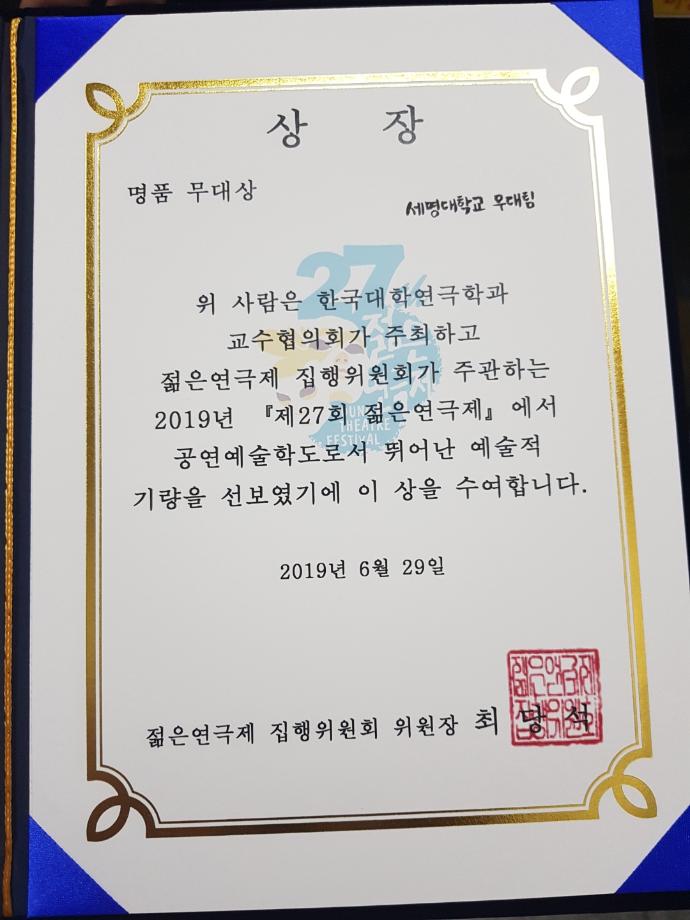 상 장
명품 무대상
세명대학교 무대팀
27
위 사람은 한국대학연극학과
교수협의회가 주최하고
젊은연극제 집행위원회가 주관하는
2019년 『제27회 젊은연극제』에서
공연예술학도로서 뛰어난 예술적
기량을 선보였기에 이 상을 수여합니다.
THEATRE
FESTIVAL
2019년 6월 29일
젊은연극제 집행위원회 위원장 최 석